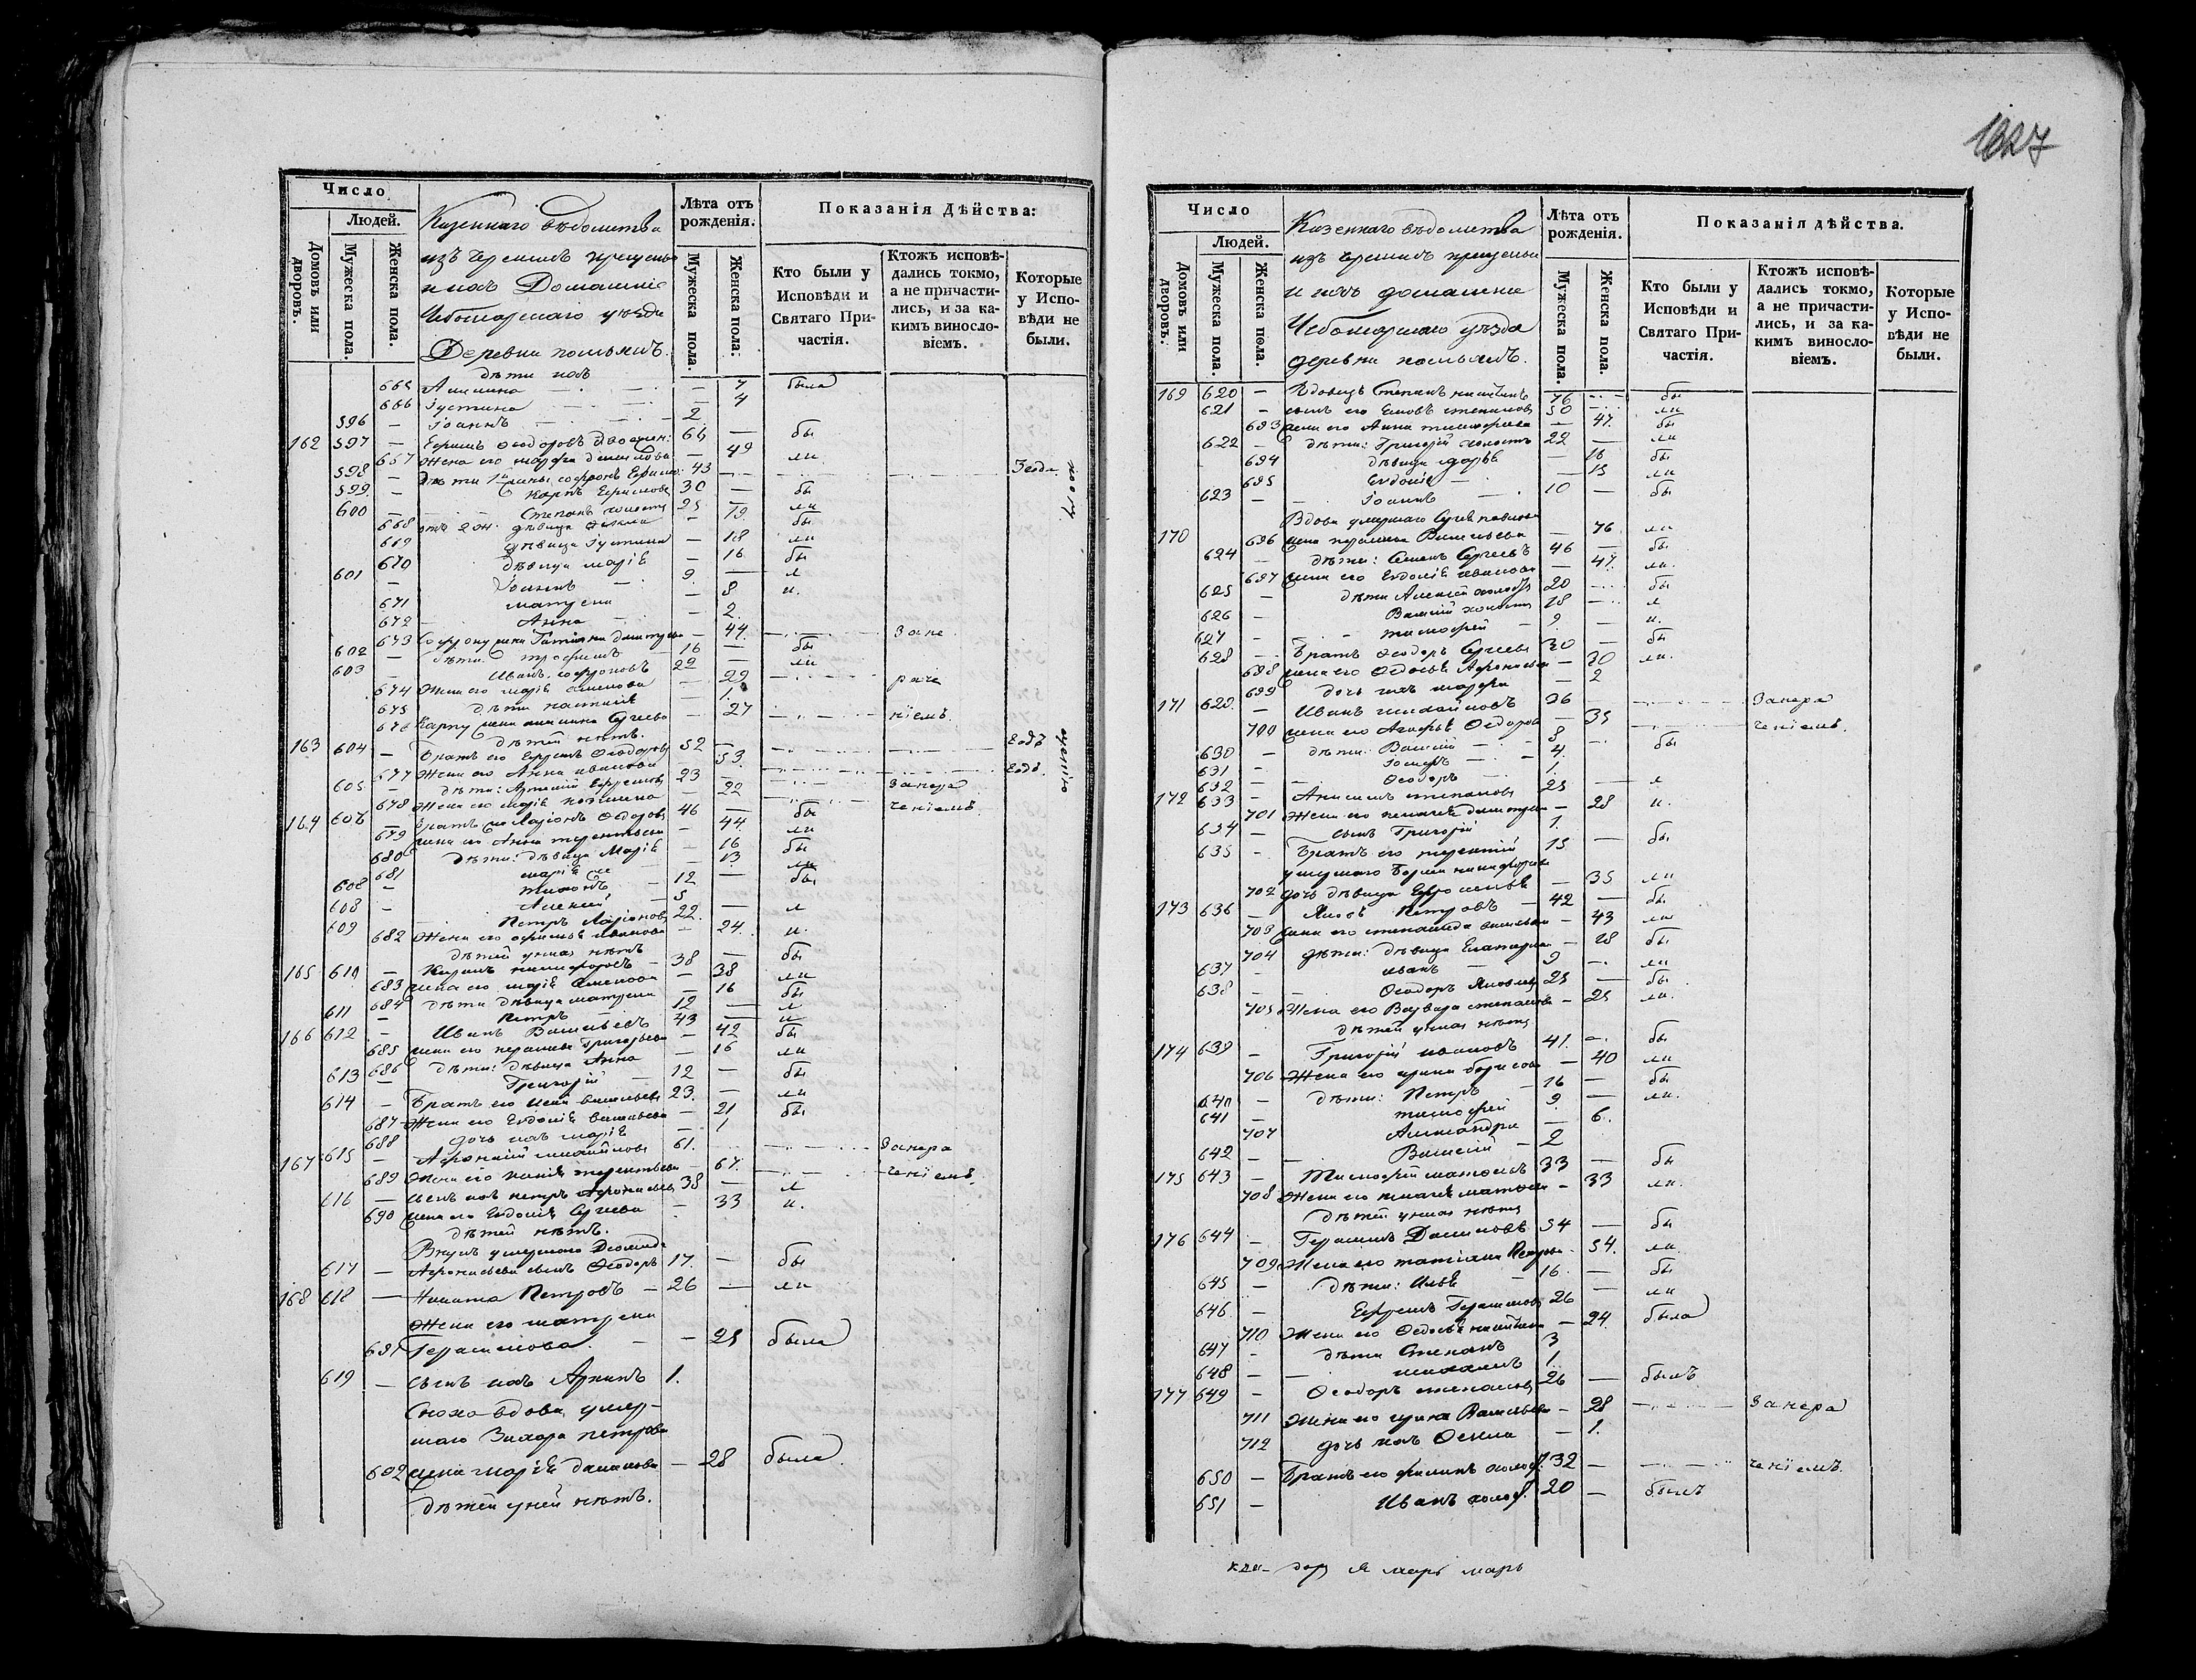 1027
Число
Людей.
Домовъ или дворовъ.
Мужеска пола.
Женска пола.
Казеннаго вѣдомства
изъ черемисъ крещены
и ихъ Домашніе
Чебоксарскаго уѣзда
Деревни
Лѣта отъ рожденія.
Мужеска пола.
Женска пола:
Показанія Дѣйства:
Кто были у Исповѣди и Святаго Причастія.
Ктожъ исповѣдались токмо, а не причастились, и за какимъ винословіемъ.
Которые у Исповѣди не были.
дѣти ихъ
665 Акилина — 7 была
666 Іустина — 4
596 — Іоаннъ 2
162 597 — Ефимъ Ѳеодоровъ 64 — бы
667 Жена его Марѳа Данилова — 49 ли
598 — Дѣти 1й жены Софронъ Ефимов: 43
599 — Карпъ Ефимовъ 30 — бы
600 — Степанъ холостъ 25 ли
668 отъ 2 жн. дѣвица — 19 бы
669 дѣвица Іустина — 18 ли
670 дѣвица Марія — 16 бы
601 — Іоаннъ 9 — л
671 Матрена — 8 и.
672 Анна — 2
673 Софрону жена Татіана Дмитріева — 44 Запе
602 — дѣти Трофимъ 16 — бы
603 — Иванъ Софроновъ 22 — ли
674 Жена его Марія Семенова — 22 рече
675 дѣти Настасія — 1
676 Карпу жена Акилина Сергѣева — 27 ніемъ
дѣтей нѣтъ.
163 604 — Братъ его Ефремъ Ѳеодоровъ 52 —
677 Жена его Анна Иванова — 53
605 — дѣти: Артемій Ефремовъ 23 — Запре
678 Жена его Марія Козмина — 22 ченіемъ
164 607 — Братъ его Ларіонъ Ѳеодоровъ 46 — бы
679 жена его Анна Терентьева — 44 ли
680 Дѣти: дѣвица Марія — 16 бы
681 Марія — 13 ли
608 — Тихонъ 12 — бы
608 — Алексѣй 5
609 Петръ Ларіоновъ 22 — л
682 Жена его Иванова — 24 и.
дѣтей у нихъ нѣтъ
165 610 — Кирилъ Никифоровъ 38 — бы
683 жена его Марія Семенова — 38 ли
684 Дѣти дѣвица Матрена — 16 бы
611 — Петръ 12 — л
166 612 — Иванъ Васильевъ 43 — и
685 жена его Пелагея Григорьева — 42 бы
686 дѣти: дѣвица Анна — 16 ли
613 — Григорій 12 — бы
614 — Братъ его Васильевъ 23 — ли
687 Жена его Евдокія Васильева — 21 бы
688 дочь ихъ Марія — 1
167 615 — Аѳонасій Михайловъ 61. Запре
689 Жена его Терентьева — 67. ченіемъ
616 — Сынъ ихъ Петръ Аѳонасьевъ 38 — л
690 жена его Евдокія Сергѣева — 33 и.
дѣтей нѣтъ.
Внукъ умершаго Діомида
617 — Аѳонасьева сынъ Ѳеодоръ 17. — бы
168 618 — Никита Петровъ — 26 — ли
Жена его Матрена
691 Герасимова. — 25 была
619 — сынъ ихъ Архипъ 1.
Сноха вдова умер-
шаго Захара Петрова
692 жена Марія Данилова — 28 была
дѣтей у ней нѣтъ.
Число
Людей.
Домовъ или дворовъ.
Мужеска пола.
Женска пола.
Казеннаго вѣдомства
изъ черемисъ крещены
и ихъ домашніе
Чебоксарскаго уѣзда
деревни
Лѣта отъ рожденія.
Мужеска пола.
Женска пола.
Показанія дѣйства.
Кто были у Исповѣди и Святаго Причастія.
Ктожъ исповѣдались токмо, а не причастились, и за какимъ винословіемъ.
Которые у Исповѣди не были.
169 620 — Вдовецъ Степанъ Никитинъ 76 — бы
621 — сынъ его Степановъ 50 — ли
693 жена его Анна Тимоѳеева — 47. бы
622 — дѣти: Григорій холостъ 22 — ли
694 дѣвица Дарья — 16 бы
695 Евдокія — 15 ли
623 — Іоаннъ 10 — бы
Вдова умершаго Сергѣя Павлова
170 696 жена Пелагея Васильева — 76 ли
624 — дѣти: Семенъ Сергѣевъ 46 — бы
697 жена его Евдокія Иванова — 47. ли.
625 — дѣти Алексѣй холостъ 20 — бы
626 — Василій холостъ 18 — л
627 — Тимоѳей — 9 — и.
628 — Братъ Ѳеодоръ Сергѣевъ 30 — бы
698 жена его Ѳедосья Аѳонасьева — 30 ли.
699 дочь ихъ Марѳа — 2
171 629 — Иванъ Михайловъ 36 — Запре
700 жена его Агаѳья Ѳедорова — 35 ченіемъ.
630 — дѣти: Василій — 8 — бы
631 — 4.
632 — Ѳеодоръ 1.
172 633 — Анисимъ Степановъ 25 — л
701 Жена его Дмитріева — 28 и.
634 — сынъ Григорій 1.
635 — Братъ его Терентій 15 — бы
умершаго Никифорова
702 дочь дѣвица Евфросинья — 35 ли
173 636 — Яковъ Петровъ — 42 — бы
703 жена его Степанида Васильева — 43 ли
704 дѣти: дѣвица Екатерина — 18 бы
637 — Иванъ 9 — ли
638 — Ѳеодоръ Яковлевъ 25 — бы
705 Жена его Варвара Степанова — 25 ли.
дѣтей у нихъ нѣтъ
174 639 — Григорій Ивановъ 41. — бы
706 Жена его Ирина Борисова — 40 ли
640 — дѣти: Петръ 16 — бы
641 — Тимоѳей 9 — ли.
707 Александра — 6.
642 — Василій — 2
175 643 — Тимоѳей Матвѣевъ 33 — бы
708 Жена его Матвѣева — 33 ли.
дѣтей у нихъ нѣтъ
176 644 — Герасимъ Даниловъ 54 — бы
709 Жена его Татіана Петрова — 54. ли
645 — дѣти: Илья — 16 — бы
646 — Ефремъ Герасимовъ 26 — ли
710 Жена его Ѳедосья Никитина — 24. была
647 — дѣти Степанъ 3
648 — 1.
177 649 — Ѳеодоръ Степановъ 26 — былъ
711 Жена его Ирина Васильева — 28 — Запре
712 дочь ихъ — 1.
650 — Братъ его Филипъ холост. 32 — ченіемъ.
651 — Иванъ холост. 20 — былъ